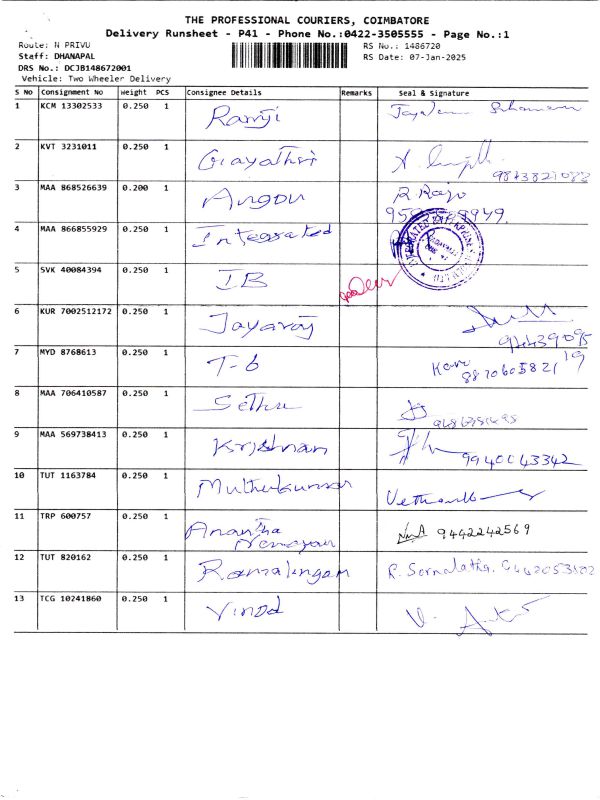 THE PROFESSIONAL COURIERS, COIMBATORE
Delivery Runsheet - P41 - Phone No.:0422-3505555 - Page No.:1
Route: N PRIVU
RS No.: 1486720
Staff: DHANAPAL
RS Date: 07-Jan-2025
DRS No.: DCJB148672001
Vehicle: Two Wheeler Delivery
S No Consignment No Weight PCS Consignee Details Remarks Seal & Signature
1 KCM 13302533 0.250 1 Ramji
2 KVT 3231011 0.250 1 Gayathri
3 MAA 868526639 0.200 1 Angou R. Raju
4 MAA 866855929 0.250 1 Integrated
5 SVK 40084394 0.250 1 IB
6 KUR 7002512172 0.250 1 Jayaraj
7 MYD 8768613 0.250 1 T-6
8870605821
8 MAA 706410587 0.250 1 Sethu
9 MAA 569738413 0.250 1 Krishnan 9940043342
10 TUT 1163784 0.250 1 Muthukumar
11 TRP 600757 0.250 1 Anantha 9442242569
Narayan
12 TUT 820162 0.250 1 Ramalingam
13 TCG 10241860 0.250 1 Vinod